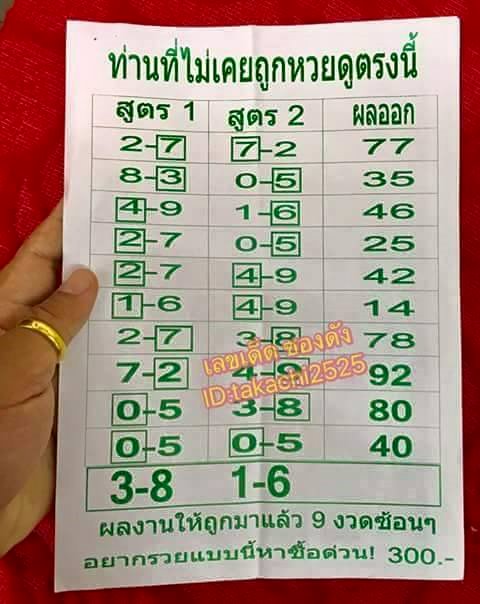 ท่านที่ไม่เคยถูกหวยดูตรงนี้
สูตร 1 สูตร 2 ผลออก
2-7 7-2 77
8-3 0-5 35
4-9 1-6 46
2-7 0-5 25
2-7 4-9 42
1-6 4-9 14
2-7 3-8 78
7-2 4-9 92
0-5 3-8 80
0-5 0-5 40
3-8 1-6
เลขเด็ด ช่องดัง
ID:takachi2525
ผลงานให้ถูกมาแล้ว 9 งวดซ้อนๆ
อยากรวยแบบนี้หาซื้อด่วน! 300.-